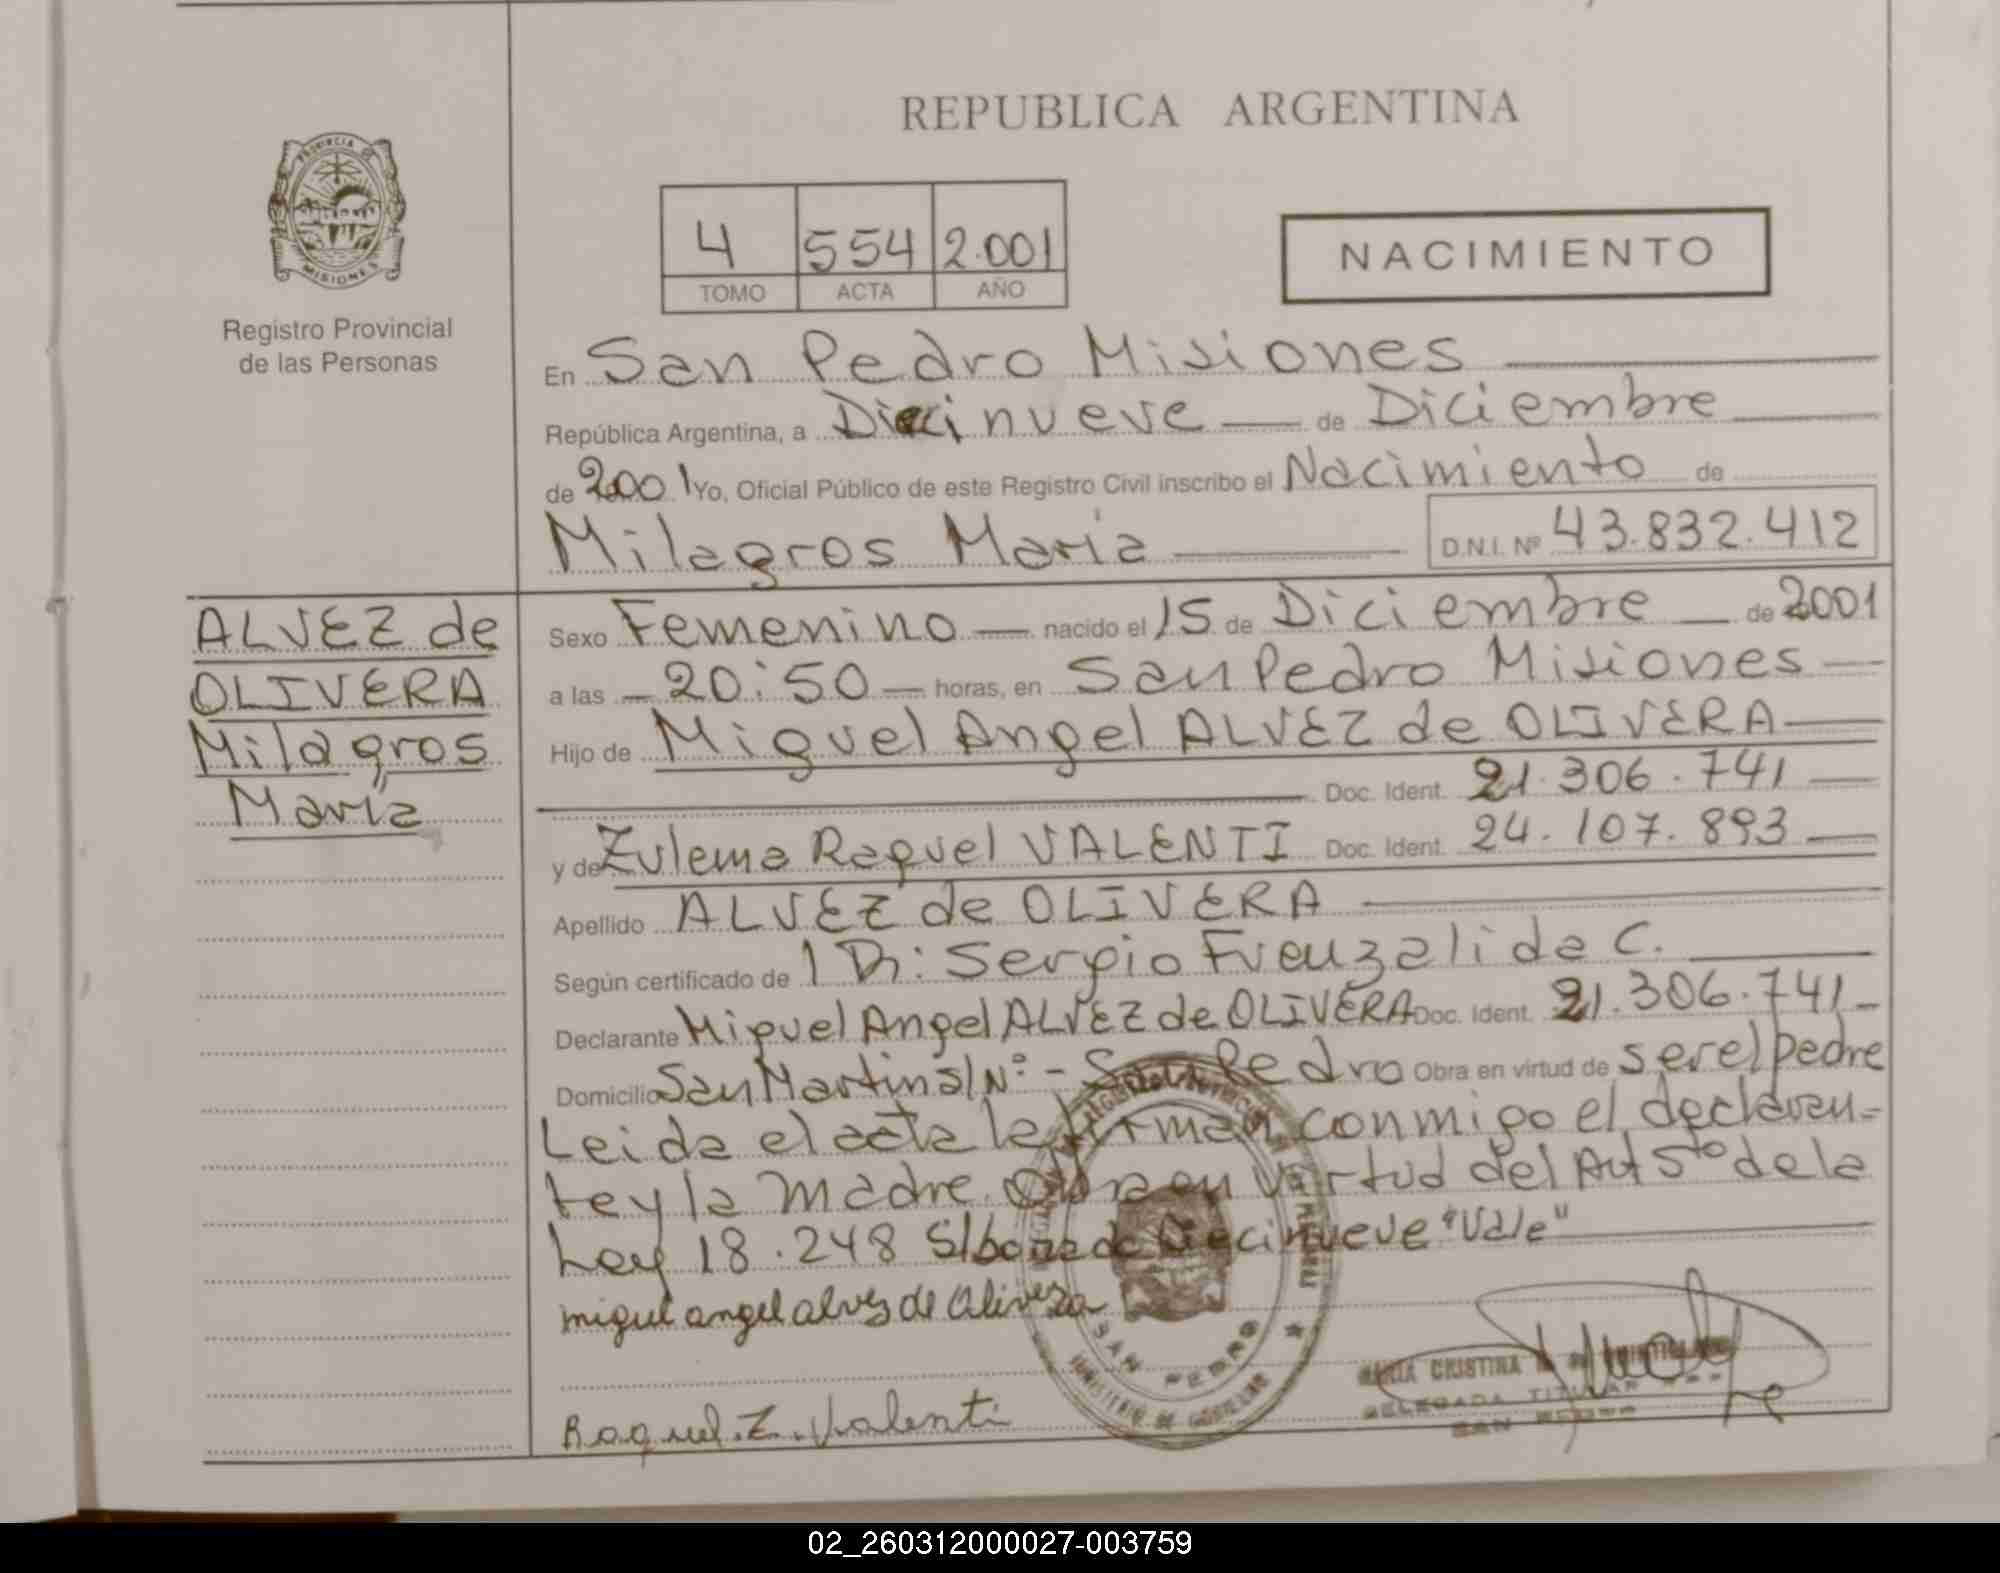 REPUBLICA ARGENTINA
PROVINCIA DE
MISIONES
Registro Provincial
de las Personas
4 554 2.001
TOMO ACTA AÑO
NACIMIENTO
En San Pedro Misiones
República Argentina, a Diecinueve de Diciembre
de 2001 Yo, Oficial Público de este Registro Civil inscribo el Nacimiento de
Milagros María D.N.I. Nº 43.832.412
ALVEZ de
OLIVERA
Milagros
María
Sexo Femenino nacido el 15 de Diciembre de 2001
a las 20:50 horas, en San Pedro Misiones
Hijo de Miguel Angel ALVEZ de OLIVERA
Doc. Ident. 21.306.741
y de Zulema Raquel VALENTI Doc. Ident. 24.107.893
Apellido ALVEZ de OLIVERA
Según certificado de Dr: Sergio C.
Declarante Miguel Angel ALVEZ de OLIVERA Doc. Ident. 21.306.741
Domicilio San Martin S/Nº - San Pedro Obra en virtud de ser el padre
Leida el acta la firman conmigo el declaran=
te y la madre. Obra en virtud del Art 5to de la
Ley 18.248 S/borrado Diecinueve "Vale"
miguel angel alvez de Olivera
SAN PEDRO
MINISTERIO DE GOBIERNO
Raquel Z. Valenti
MARIA CRISTINA
DELEGADA TITULAR
SAN PEDRO
02_260312000027-003759